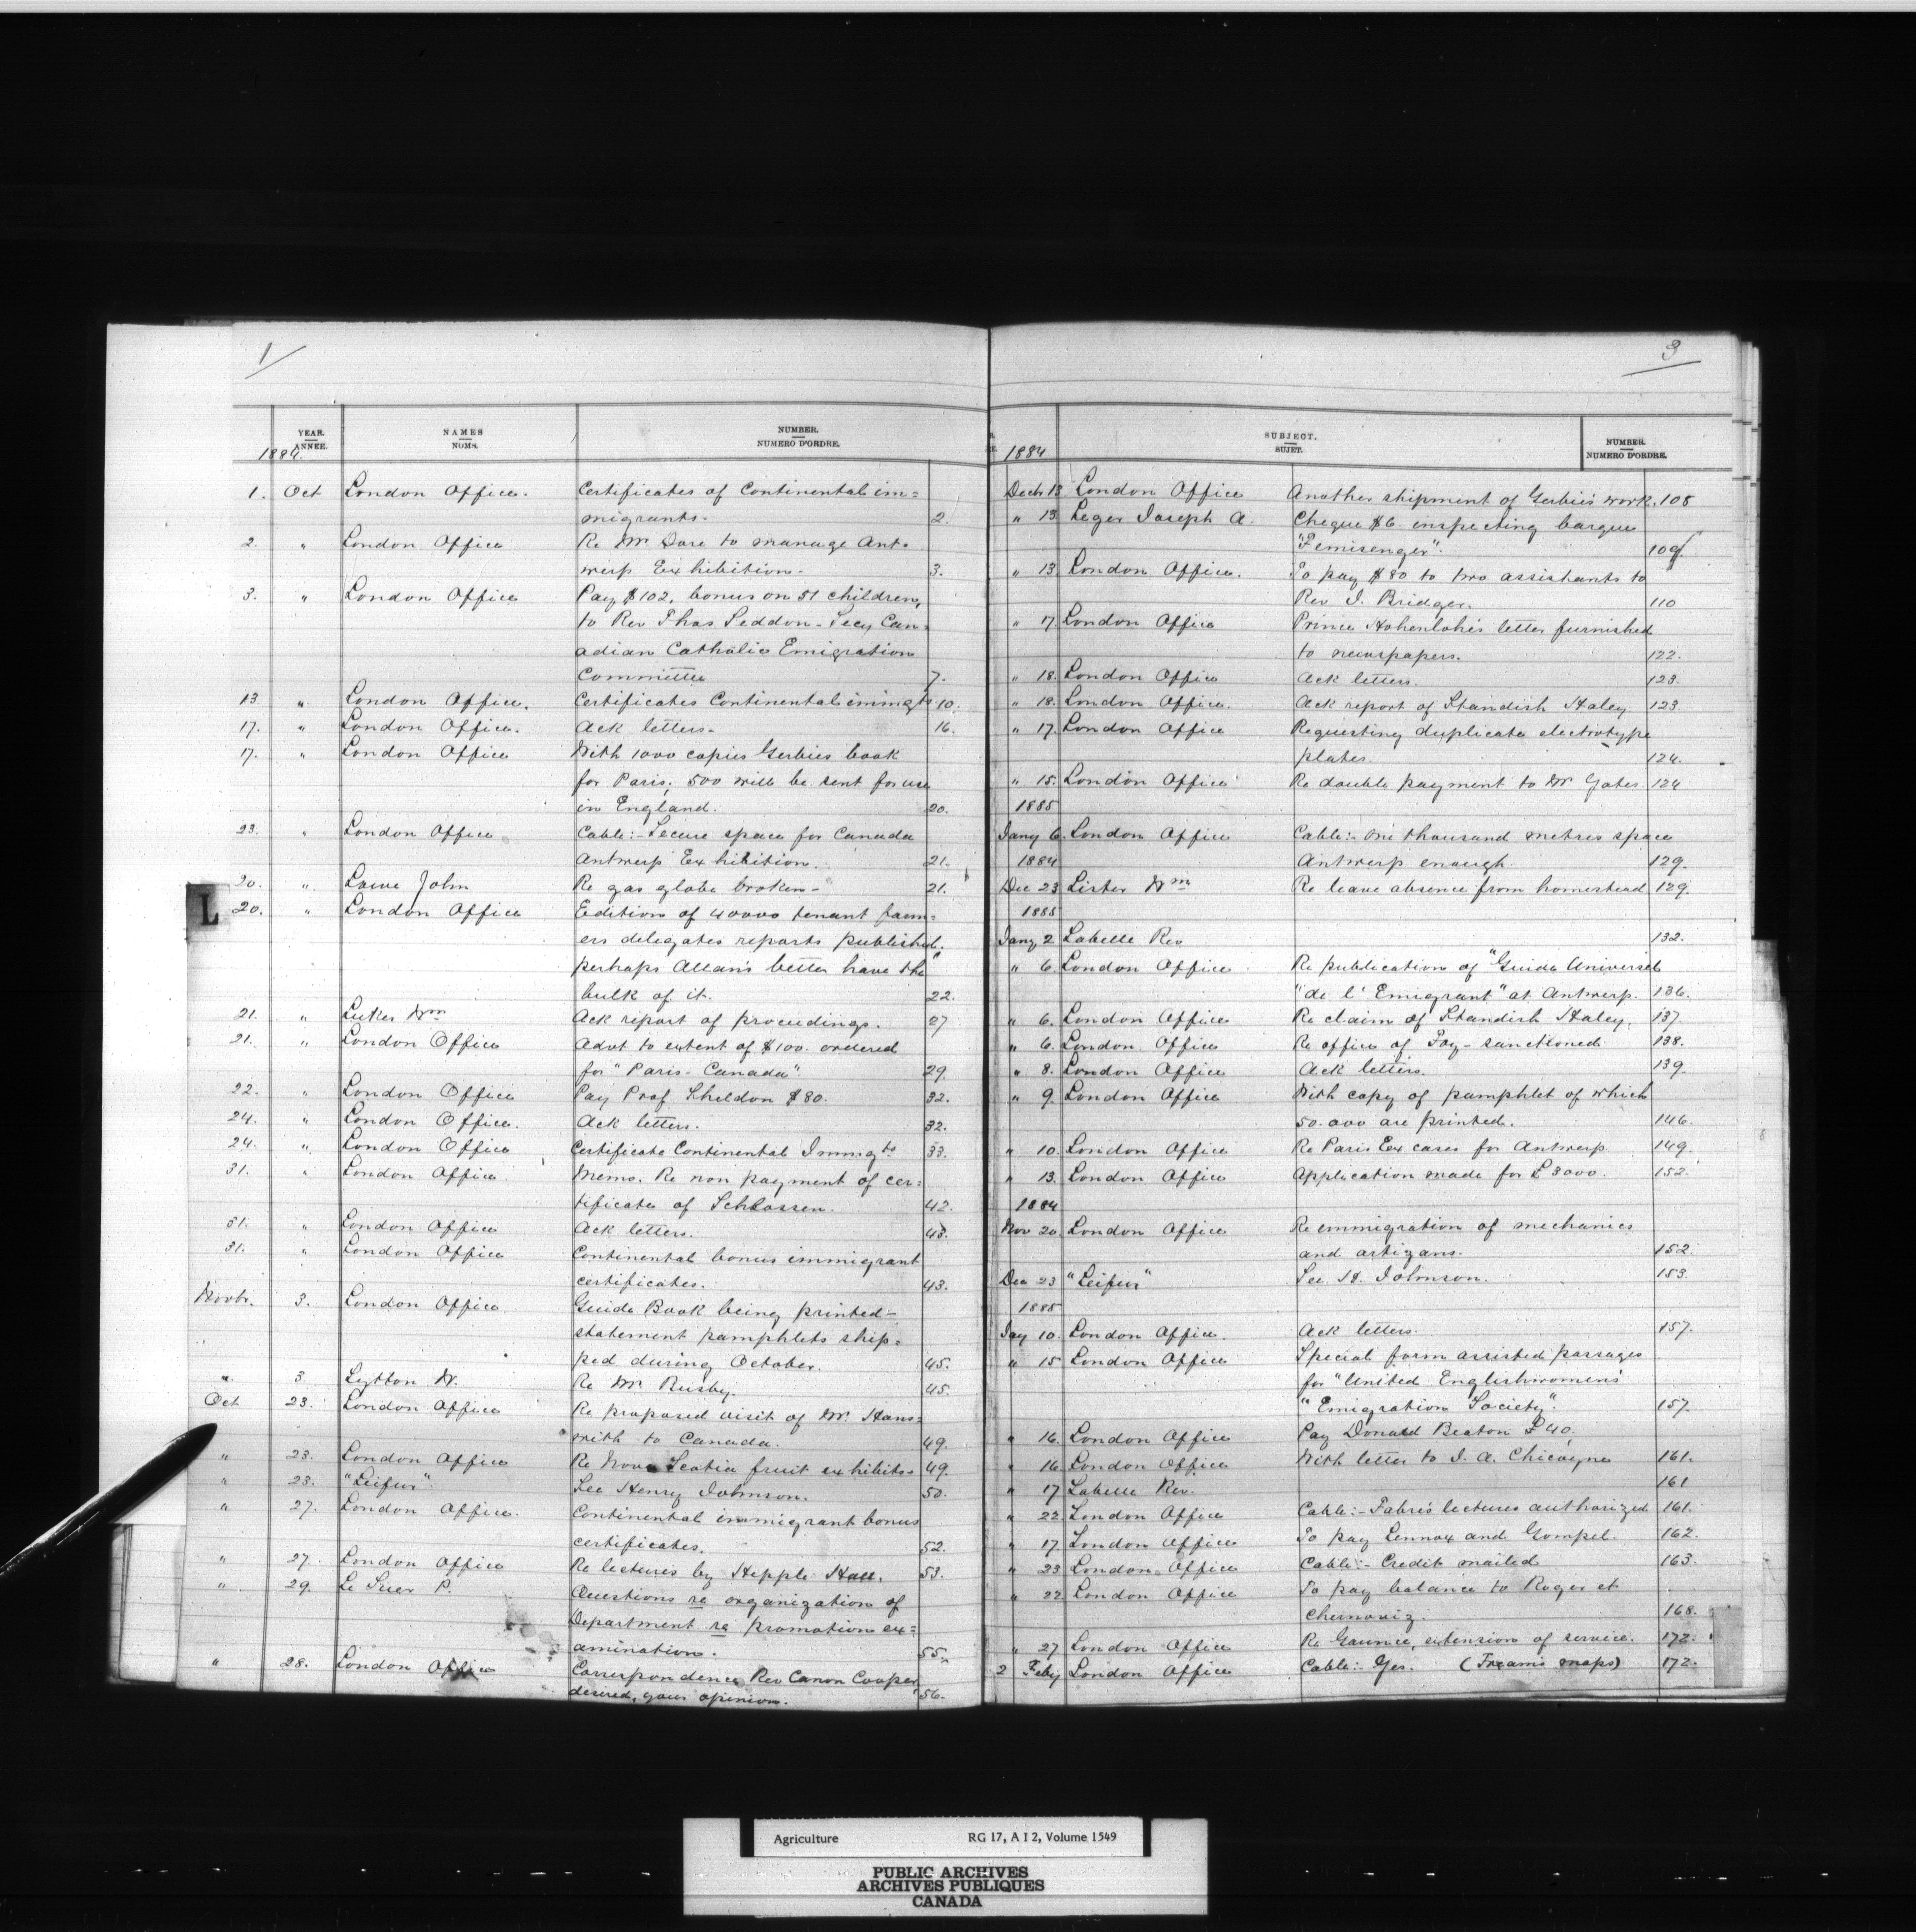 1
YEAR. NAMES NUMBER.
ANNÉE. NOMS. NUMERO D'ORDRE.
1884.
1. Oct London Office. Certificates of Continental im=
migrants. 2.
2. " London Office Re Mr Dore to manage Ant=
werp Exhibition. 3.
3. " London Office Pay $102. bonus on 51 children,
to Rev Thos Seddon - Secy Can=
adian Catholic Emigration
Committee 7.
13 " London Office. Certificates Continental immigts 10.
17. " London Office. Ack letters. 16.
17. " London Office With 1000 copies Gerbies book
for Paris, 500 will be sent for use
in England. 20.
23. " London Office Cable:- Secure space for Canada
Antwerp Exhibition. 21.
20. " Lowe John Re gas globe broken - 21.
L
20. " London Office Edition of 40000 tenant farm=
ers delegates reports published.
perhaps Allan's better have the
bulk of it. 22.
21. " Luker Wm Ack report of proceedings. 27
21. " London Office Advt to extent of $100. ordered
for "Paris-Canada". 29.
22. " London Office Pay Prof Sheldon $80. 32.
24. " London Office. Ack letters. 32.
24. " London Office Certificate Continental Immigts 33.
31. " London Office. Memo. Re non payment of cer=
tificate of Schlossen. 42.
31. " London Office Ack letters. 43.
31. " London Office Continental bonus immigrant
certificates. 43.
Novbr. 3. London Office Guide Book being printed -
statement pamphlets ship=
ped during October. 45.
" 3. Lytton W. Re Mr Rusby. 45.
Oct 23. London Office Re proposed visit of Mr. Hans=
with to Canada. 49.
" 23. London Office Re Nova Scotia fruit exhibits 49.
" 23. "Leifur" See Henry Johnson. 50.
" 27. London Office. Continental immigrant bonus
certificates. 52.
" 27. London Office Re lectures by Hepple Hall. 53.
" 29. Le Suer P. Questions re organization of
Department re promotion ex=
amination. 55.
" 28. London Office Correspondence Rev Canon Cooper
desired, your opinion. 56.
3
SUBJECT. NUMBER.
SUJET. NUMERO D'ORDRE.
1884
Decbr 13 London Office Another shipment of Gerbie's work. 108
" 13 Leger Joseph A. Cheque $6. inspecting barque
"Femisenger". 109
" 13 London Office. To pay $80 to two assistants to
Rev J. Bridger. 110
" 17. London Office Prince Hohenlohe's letter furnished
to newspapers. 122.
" 18. London Office Ack letters. 123.
" 18. London Office. Ack report of Standish Haley. 123.
" 17. London Office Requesting duplicate electrotype
plates. 124.
" 15. London Office Re double payment to Mr Yates. 124
1885
Jany 6. London Office Cable:- One thousand metres space
1884 Antwerp enough. 129.
Dec 23 Lister Wm Re leave absence from homestead 129.
1885
Jany 2 Labelle Rev 132.
" 6. London Office Re publication of "Guide Universel
"de l' Emigrant" at Antwerp. 136.
" 6. London Office Re claim of Standish Haley. 137.
" 6. London Office Re office of Foy - sanctioned 138.
" 8. London Office Ack letters. 139.
" 9. London Office With copy of pamphlet of which
50.000 are printed. 146.
" 10. London Office Re Paris Ex cases for Antwerp. 149.
" 13. London Office Application made for £3000. 152.
1884
Nov 20 London Office Re emmigration of mechanics
and artizans. 152.
Dec 23 "Leifur" See H. Johnson. 153.
1885
Jay 10. London Office. Ack letters. 157.
" 15 London Office Special form assisted passages
for "United Englishwomens'
"Emigration Society". 157.
" 16. London Office Pay Donald Beaton £40.
" 16 London Office With letter to J. A. Chicoyne 161.
" 17 Labelle Rev. 161
" 22 London Office Cable:- Fabre's lectures authorized 161.
" 17 London Office To pay Lennox and Gompel. 162.
" 23 London Office Cable:- Credit mailed 163.
" 22 London Office To pay balance to Roger et
Chernoviz. 168.
" 27 London Office Re Gaunce, extension of service. 172.
2 Feby London Office Cable:- Yes. (Fream's maps) 172.
Agriculture RG 17, A I 2, Volume 1549
PUBLIC ARCHIVES
ARCHIVES PUBLIQUES
CANADA